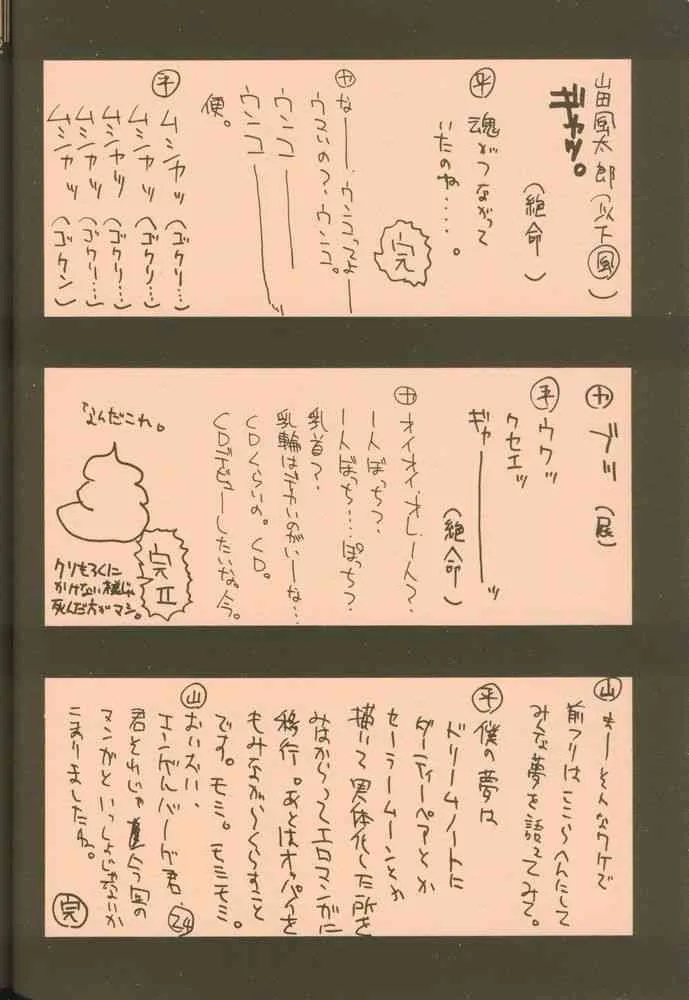 山田風太郎(以下㊟風)
ギャッ。
(絶命)
平 魂がつながって
いたのね‥‥。
完
カ なー、ウンコってよー
ウマいの?、ウンコ。
ウンコ――
ウンコ――ッ
便。
平 ムシャッ (ゴクリ…)
ムシャッ (ゴクリ…)
ムシャッ (ゴクリ…)
ムシャッ (ゴクリ…)
ムシャッ (ゴクン)
カ ブッ (屁)
平 ウクッ
クセエッ
ギャ――――ッ
(絶命)
カ オイオイ、オレ一人?、
一人ぼっち?、
一人ぼっち…ぽっち?、
乳首?、
乳輪はデカいのがいーな…
CDくらいの。CD。
CDデビューしたいな。今。
なんだこれ。
完II
クソもろくに
かけない様じゃ
死んだ方がマシ。
山 まーそんなワケで
前フリはここらへんにして
みんな夢を語ってみて。
平 僕の夢は
ドリームノートに
ダーティーペアとか
セーラームーンとか
描いて実体化した所を
みはからってエロマンガに
移行。あとはオッパイを
もみながらくらすこと
です。モミ。モミモミ。
山 おいおい、
エンゲルバーグ君 24
君それじゃ直人写の
マンガといっしょじゃないか
こまりましたね。
完